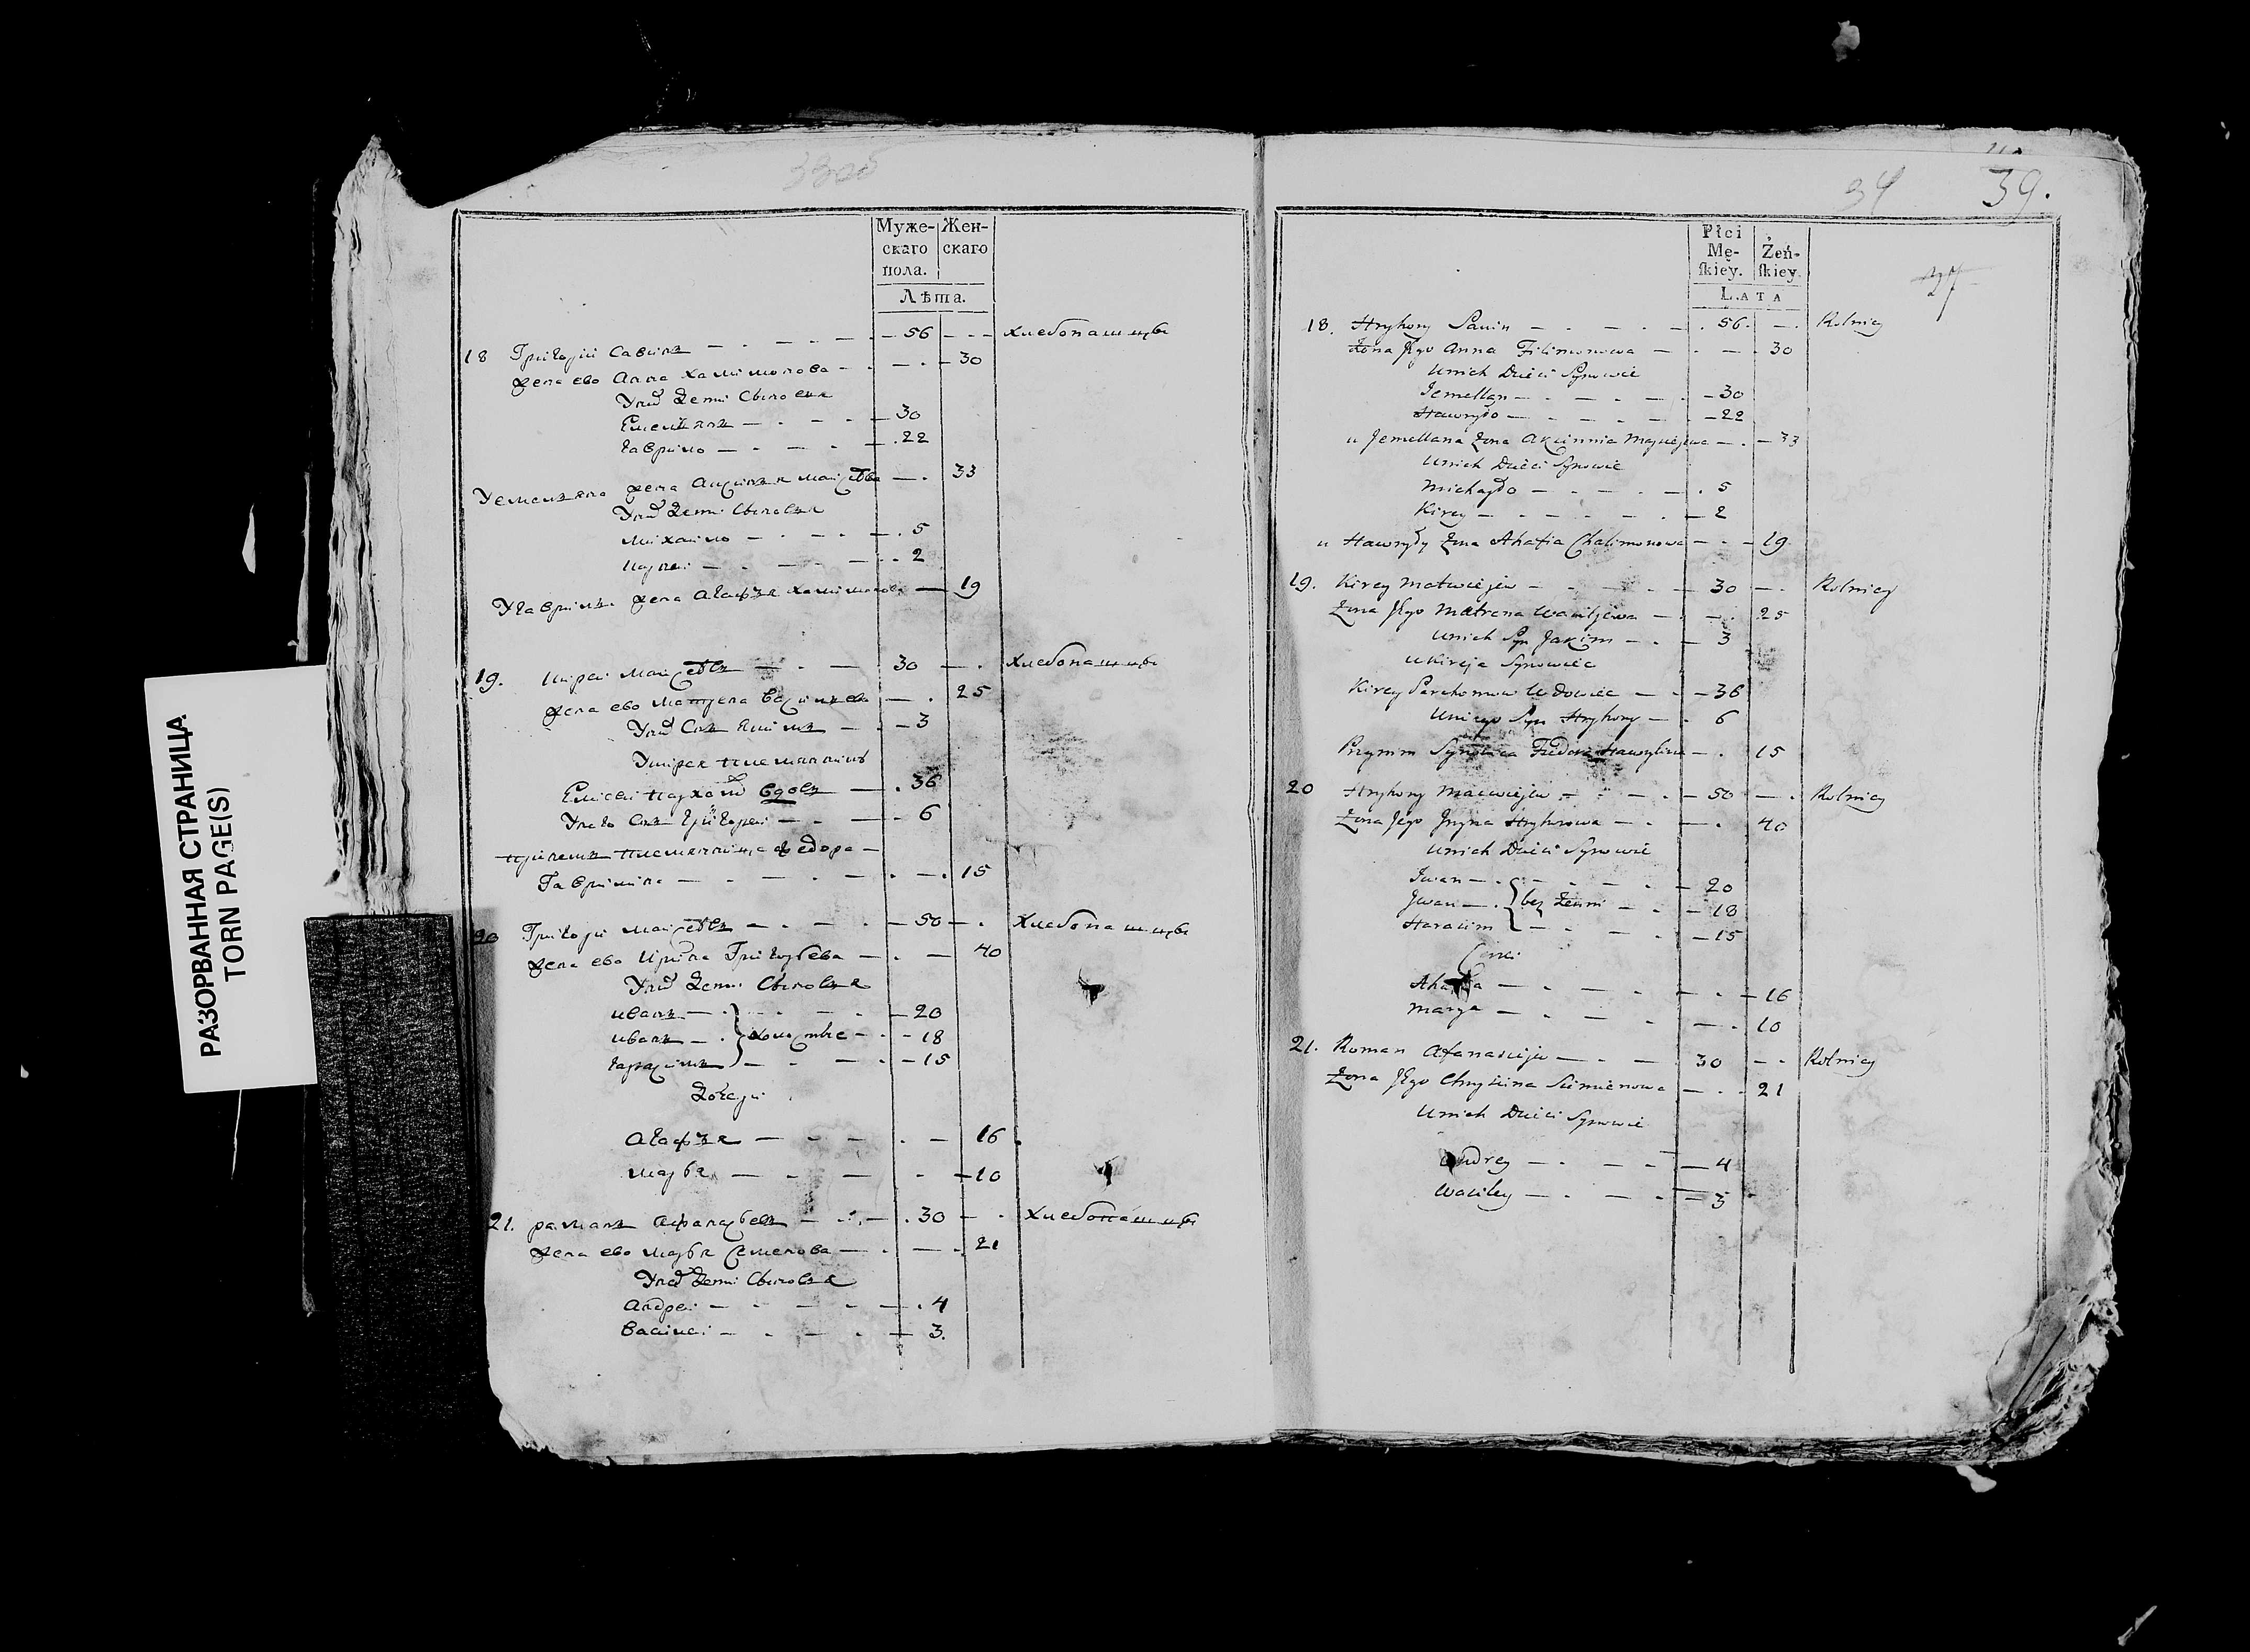 РАЗОРВАННАЯ СТРАНИЦА
TORN PAGE(S)
33об
Муже-
скаго
пола.
Жен-
скаго
Лѣта.
18 Григорiй Савинъ 56 хлебопашцы
жена ево Анна Халимонова 30
У них дети Сыновья
Емельянъ 30
Гаврило 22
У Емельяна жена Аксинья 33
У них дети Сыновья
Михаило 5
2
У Гаврилы жена Агафья Халимонова 19
19. Кирей 30 хлебопашцы
жена ево Матрена Васильева 25
У них Сынъ Якимъ 3
У Кирея племянникъ
Пархом вдовъ 36
У него Сынъ Григорей 6
при нем племянница Федора
Гаврилина 15
20 Григорей 50 Хлебопашцы
жена ево Ирина Григорьева 40
У них дети Сыновья
Иванъ 20
Иванъ } холостые 18
Гарасимъ 15
Дочери
Агафья 16
Марья 10
21. Раманъ Афанасьевъ 30 Хлебопашцы
жена ево Марья Семенова 21
У них дети Сыновья
Андрей 4
Василей 3.
34
39.
27
Płci
Mę-
ſkieÿ.
Żeń-
ſkiey.
LATA
18. Hryhory Sawin 56. Rolnicy
Żona Jego Anna Filimonowa 30
Unich Dzieci Synowie
Jemellan 30
Hawryło 22
u Jemellana Żona Akcinnia 33
Unich Dzieci Synowie
Michayło 5
Kirey 2
u Hawryły Żona Ahafia Chalimonowa 19
19. Kirey Matwiejew 30 Rolnicy
Żona Jego Matrena Wasiljewa 25
Unich Syn Jakim 3
u Kireja Synowiec
Kirey Parchomow Wdowiec 36
Uniego Syn Hryhory 6
Przynim Synowica Fiedora Hawrylina 15
20 Hryhory Maciwiejew 50 Rolnicy
Żona Jego Jryna Hryhorowa 40
Unich Dzieci Synowie
Jwan 20
Jwan } bez Żenni 18
Harasim 15
Corki
Ahafia 16
Marya 10
21. Roman Afanasiejew 30 Rolnicy
Żona Jego Chrystina Siemienowa 21
Unich Dzieci Synowie
Andrey 4
Wasiley 3